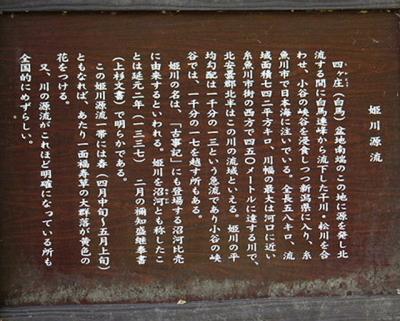 姫川源流
四ヶ庄(白馬)盆地南端のこの地に源を発し北
流する間に白馬連峰から流下した平川・松川を合
わせ、小谷の峡谷を浸食しつつ新潟県に入り、糸
魚川市で日本海に注いでいる。全長五八キロ、流
域面積七四二平方キロ、川幅の最大は河口に近い
糸魚川市街の西方で四五〇メートルに達する川で、
北安曇郡北半はこの川の流域といえる。姫川の平
均勾配は一千分の一三という急流であり小谷の峡
谷では、一千分の一七を越す所もある。
姫川の名は、「古事記」にも登場する沼河比売
に由来するといわれる。姫川を沼河とも称したこ
とは延元二年(一三三七) 二月の禰知盛継奉書
(上杉文書)で明らかである。
この姫川源流一帯には春(四月中旬〜五月上旬)
ともなれば、あたり一面福寿草の大群落が黄色の
花をつける。
又、川の源流がこれほど明確になっている所も
全国的にめずらしい。